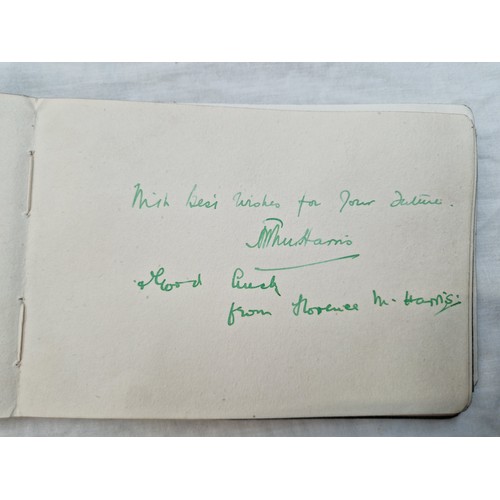 With best Wishes for Your Future.
Arthur Harris
& Good Luck
from Florence M. Harris.